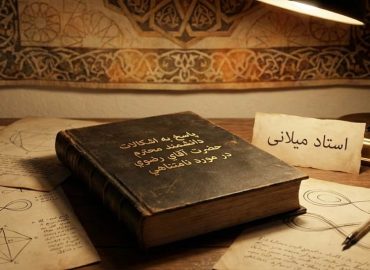 پاسخ به اشکالات
دانشمند محترم
حضرت آقاي رضوي
در مورد نامتناهي
استاد میلانی